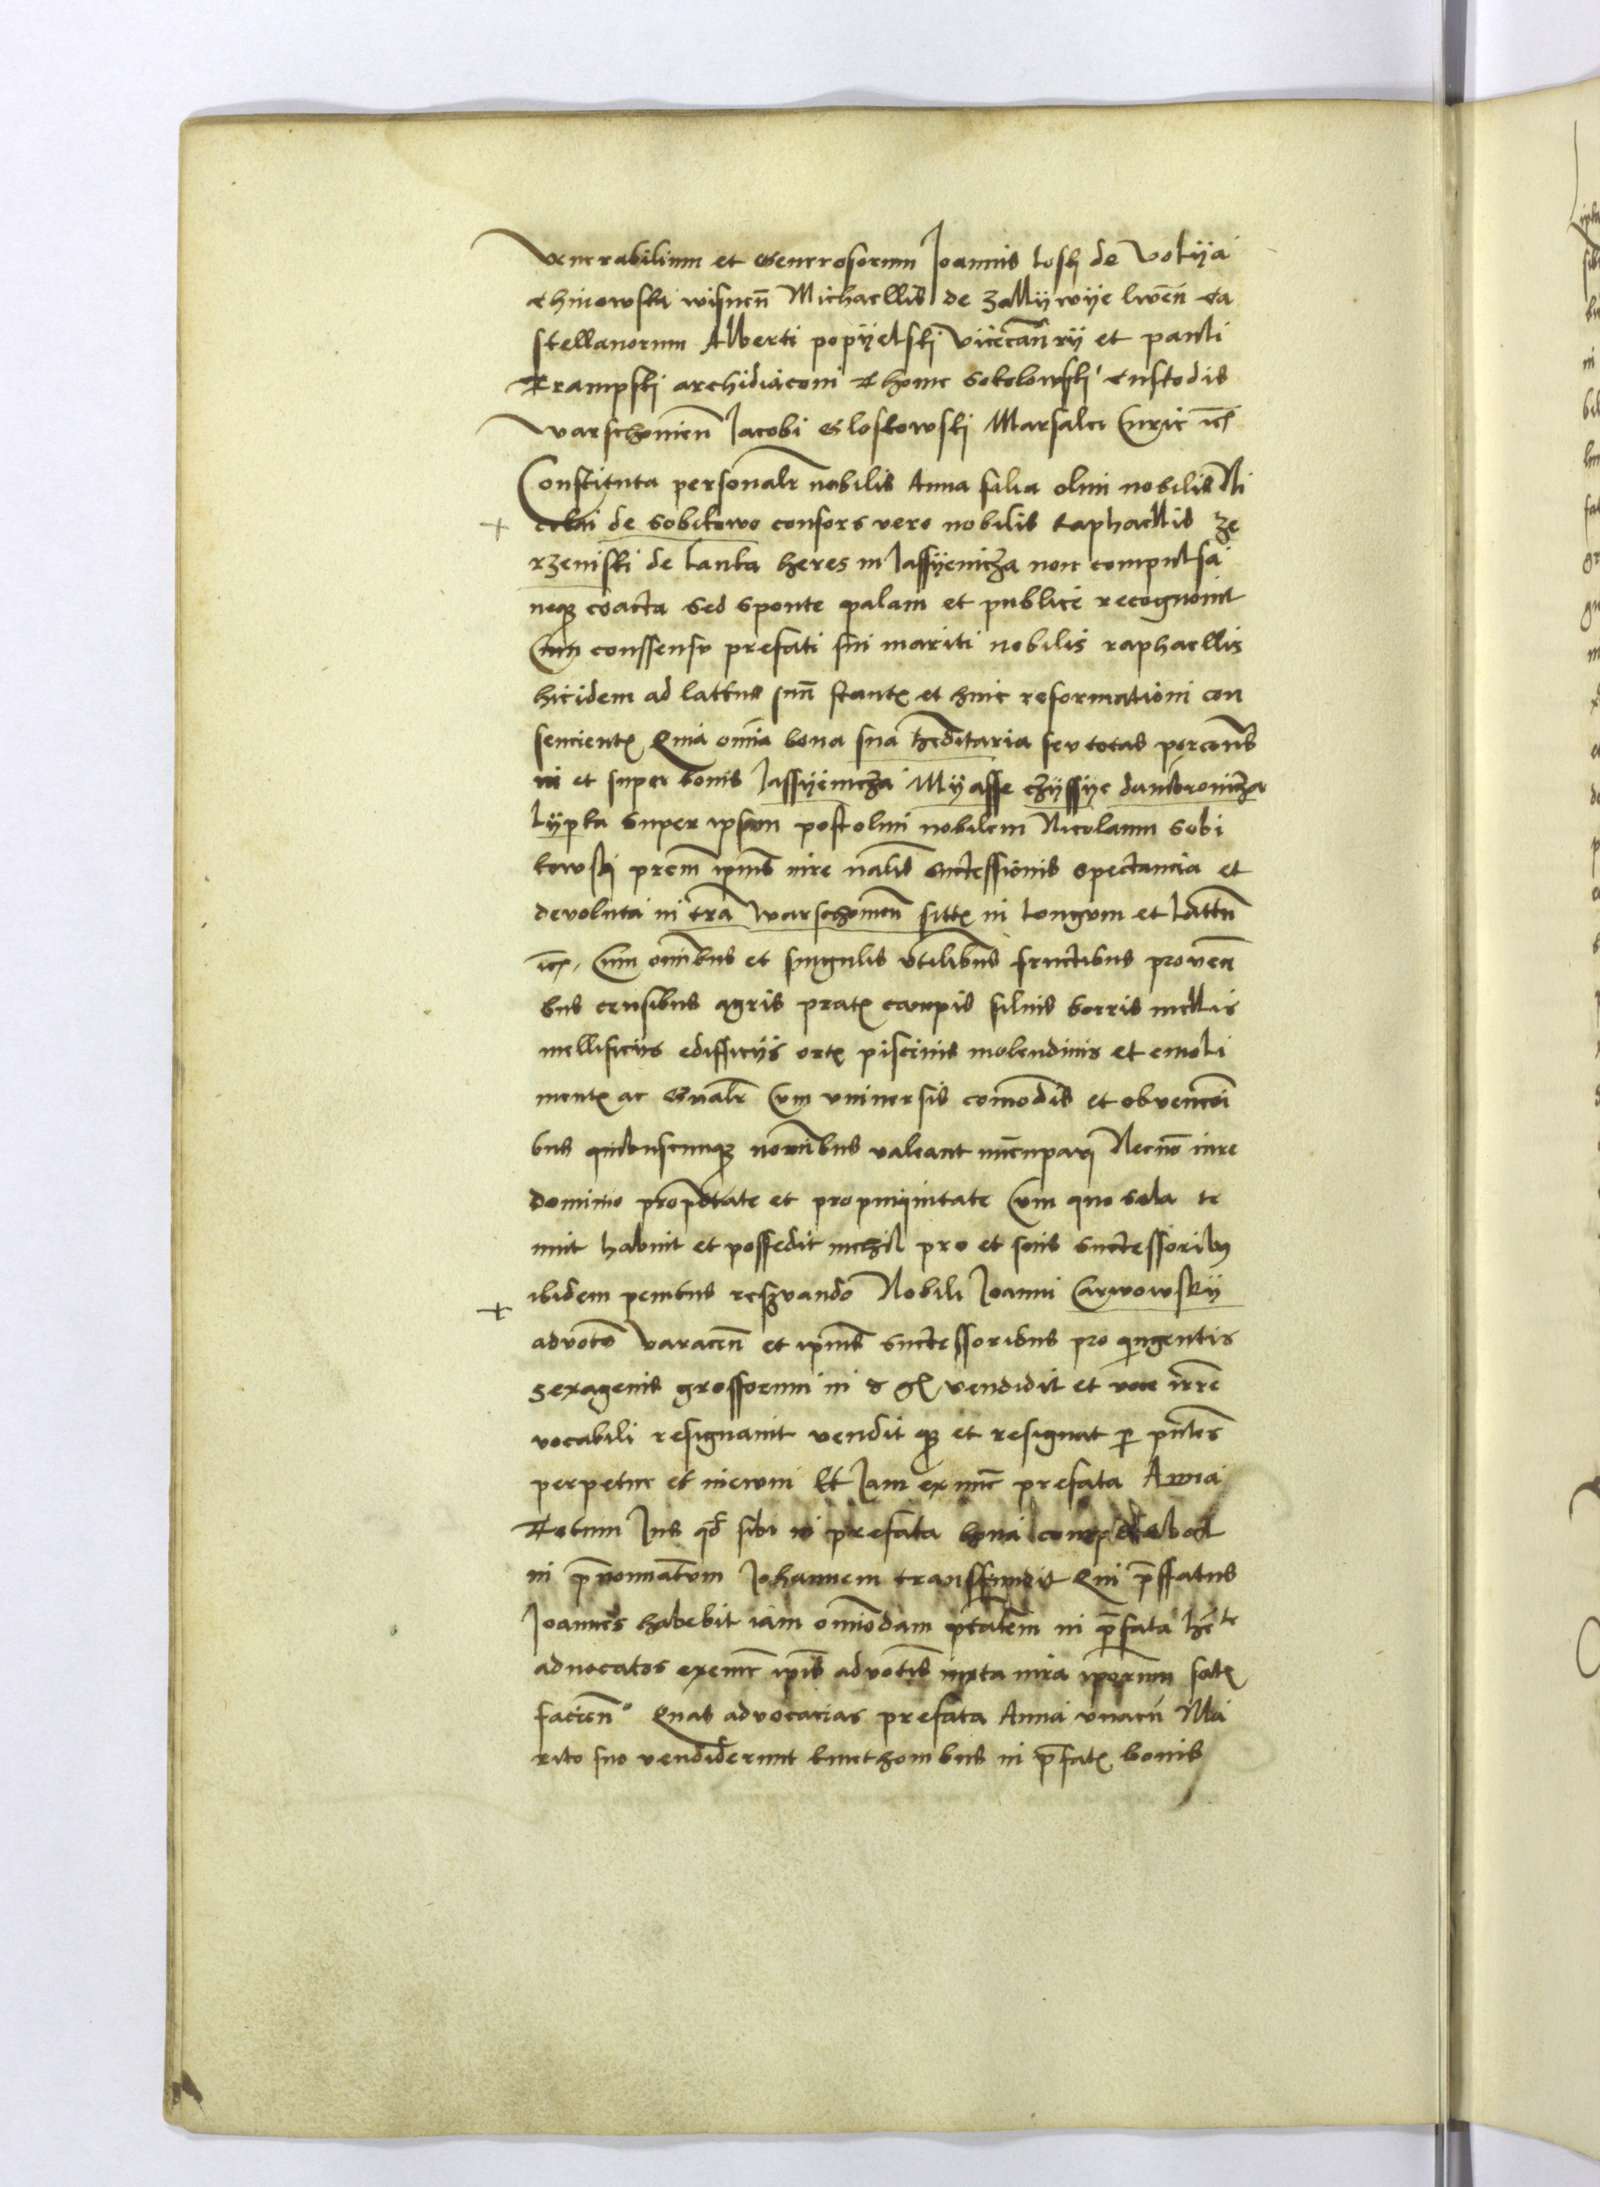 Venerabilium et Generosorum Joannis Losh de Volÿa
Chinowski wisnen̄ Michaellis de zallÿwÿe liven̄ Ca
stellanorum Alberti popÿelskj vicecan̄rÿ et pauli
Krampskj archidiaconi Thome Sokolowskj custodis
Warschovien̄ Jacobi Gloskowskj Marsalci Curie
Constituta personalr̄ nobilis Anna filia olim nobilis Ni
colai de Sobikowo consors vero nobilis Raphaellis ze
rzeniski de Lanka heres in Jassÿenicza non compulsa
neq3 coacta sed sponte palam et publice recognovit
Cum conssensv prefati sui mariti nobilis raphaellis
hicidem ad lattus suu̅ stant̄ et huic reformationi con
sencient̄ Quia omīa bona sua hēditaria seu totas porcoēs
in et super bonis Jassÿenicza Mÿasse czÿssÿe dambronicza
Lÿpka super ipsam post olim nobilem Nicolaum Sobi
kowskj prem̄ ipius iure nālis successionis spectancia et
devoluta in tr̄a Warschovien̄ sitt̄ in Longum et Lattu̅
Cum om̄ibus et singulis vtilibus fructibus proven̄
bus censibus agris prat̄ campis silvis borris mellis
mellificiis edifficÿs ort̄ piscinis molendinis et emoli
ment̄ ac Gnālr̄ Cum vniversis comōdis et obvencōi
bus quibuscunq3 nomībus valeant nūcupari Necnō iure
dominio prop̄etate et propinquitate Cum quo sola te
nuit habuit et possedit nichil pro et suis successorib3
ibidem penitus res̄ervando Nobili Joanni Carwowskÿ
advocō Varacen̄ et ipius successoribus pro q̄ingentis
sexagenis grossorum in vendidit et voce irre
vocabili resignavit vendit q3 et resignat p̄ pn̄tes
perpetue et inevum Et Jam exnūc prefata Anna
Totum Jus qd̄ sibi in prefata bona competebat
in p̄nomiātum Johannem transsfundit Qui p̄ffatus
Joannes habebit iam om̄iodam p̄tatem in p̄fata
advocatos exnūc ip̄is advōtis iuxta iura ip̄orum sat̄
facien̄ Quas advocacias prefata Anna vnacū Ma
rito suo vendiderunt kmethonibus in p̄fat̄ bonis